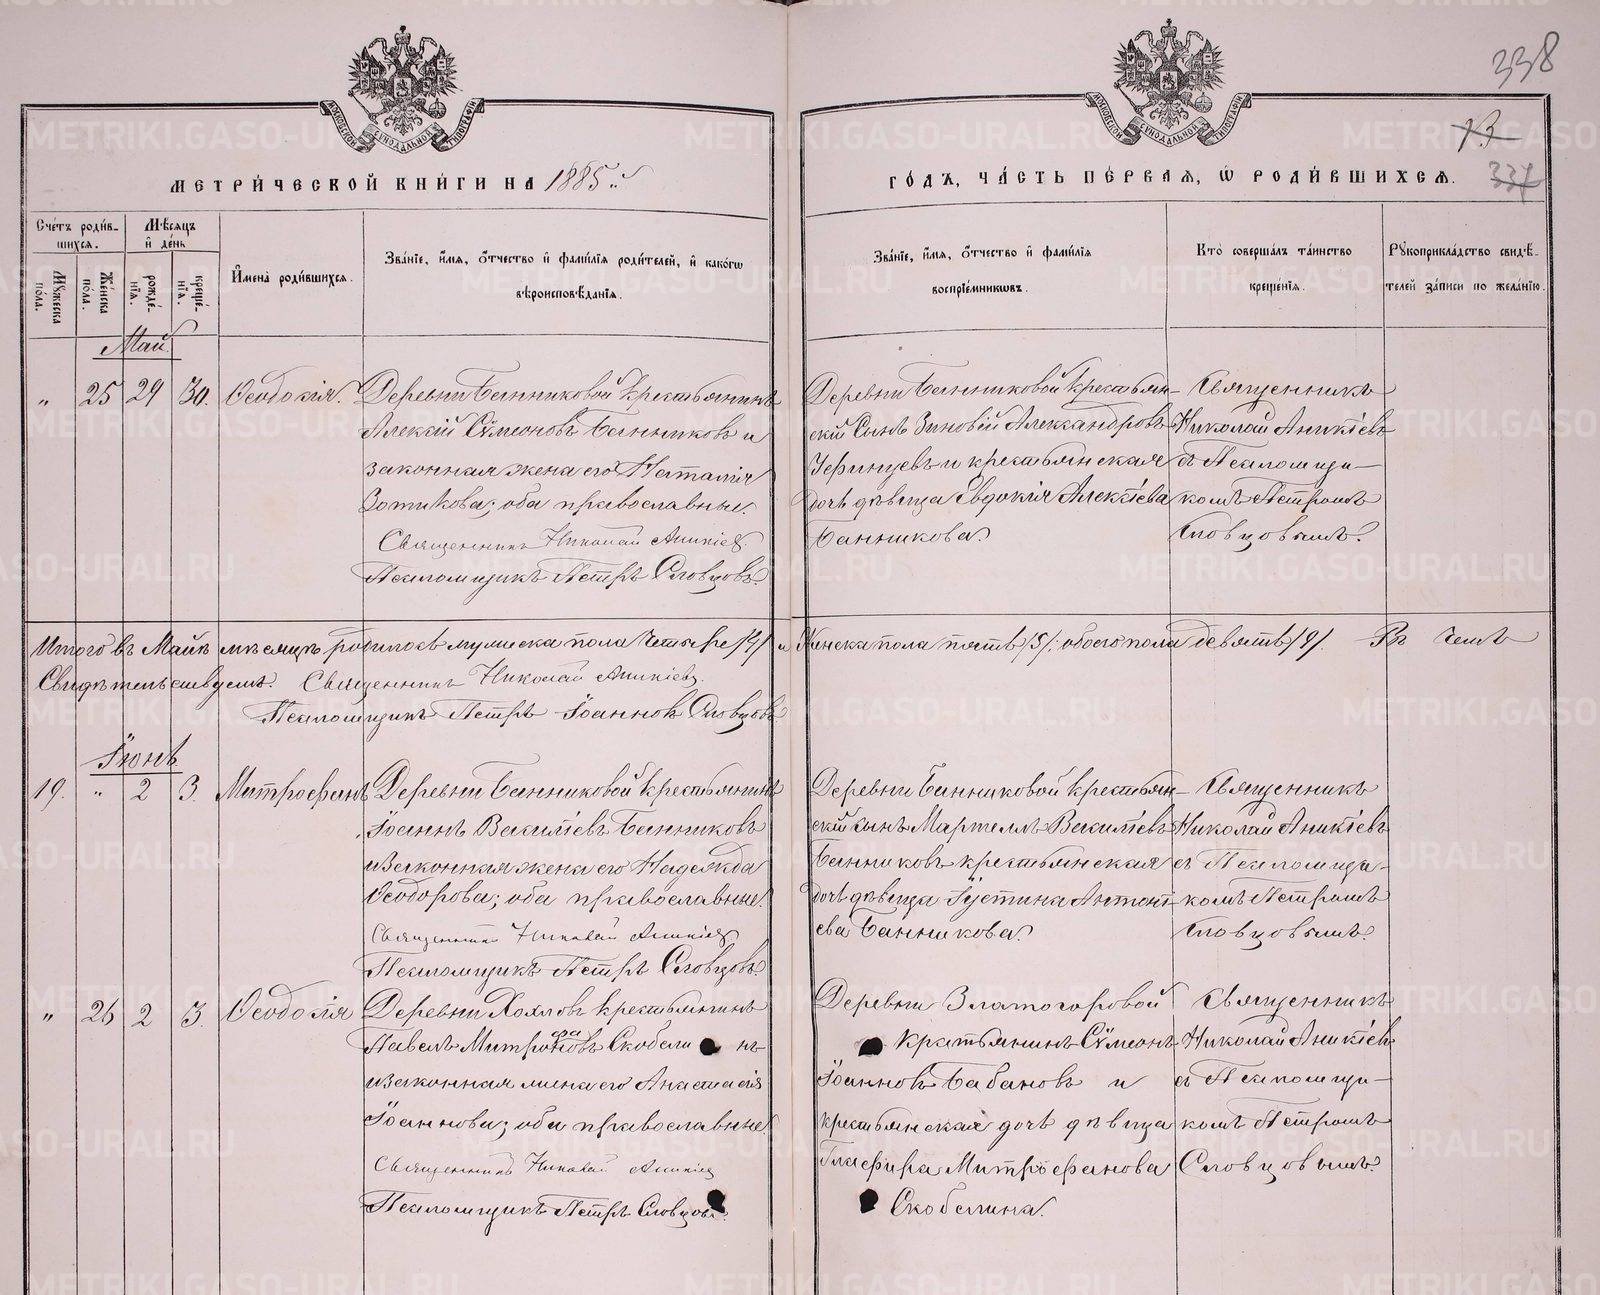 338
13
337
МЕТРИ́ЧЕСКОЙ КНИ́ГИ НА 1885й
ГО́ДЪ, ЧА́СТЬ ПЕ́РВАЯ, Ѡ РОДИ́ВШИХСЯ.
Сче́тъ роди́в-
шихся.
Мѣ́сяцъ
и де́нь
Мꙋ́жеска пола.
Же́нска пола.
рожде́-нїя.
креще́-нїя.
И҆мена̀ роди́вшихся.
Зва́нїе, и҆́мя, ѻ҆́тчество и҆ фами́лїя роди́телей, и҆ како́гѡ
вѣроисповѣ́данїя.
Зва́нїе, и҆́мя, ѻ҆́тчество и҆ фами́лїя
воспрїе́мниковъ.
Кто̀ соверша́лъ та́инство
креще́нїя.
Рꙋкоприкла́дство свидѣ́-
телей за́писи по жела́нїю.
Май.
„ 25 29 30. Ѳеодосія. Деревни Банниковой крестьянинъ
Алексій Сѵмеоновъ Банниковъ и
законная жена его Наталія
Зотикова; оба православные.
Священникъ Николай Аникіевъ
Псаломщикъ Петръ Словцовъ.
Деревни Банниковой крестьян-
скій сынъ Зиновій Александровъ
Уфинцевъ и крестьянская
дочь дѣвица Евдокія Алексіева
Банникова.
Священникъ
Николай Аникіевъ
съ Псаломщи-
комъ Петромъ
Словцовымъ.
Итого въ Маѣ мѣсяцѣ родилось мужеска пола четыре /4/ и женска пола пять /5/; обоего пола девять /9/. Въ чемъ
Свидѣтельствуемъ. Священникъ Николай Аникіевъ.
Псаломщикъ Петръ Іоанновъ Словцовъ
Іюнь
19. „ 2 3. Митрофанъ Деревни Банниковой крестьянинъ
Іоаннъ Василіевъ Банниковъ
и законная жена его Надежда
Ѳеодорова; оба православные.
Священникъ Николай Аникіевъ
Псаломщикъ Петръ Словцовъ.
Деревни Банниковой крестьян-
скій сынъ Маркеллъ Василіевъ
Банниковъ крестьянская
дочь дѣвица Іустина Антоні-
ева Банникова.
Священникъ
Николай Аникіевъ
съ Псаломщи-
комъ Петромъ
Словцовымъ.
„ 26 2 3. Ѳеодосія Деревни крестьянинъ
Павелъ Митрофановъ Скобелинъ
и законная жена его Анастасія
Іоаннова; оба православные.
Священникъ Николай Аникіевъ
Псаломщикъ Петръ Словцовъ.
Деревни Златогоровой
крестьянинъ Сѵмеонъ
Іоанновъ Бабановъ и
крестьянская дочь дѣвица
Глафира Митрофанова
Скобелина.
Священникъ
Николай Аникіевъ
съ Псаломщи-
комъ Петромъ
Словцовымъ.
METRIKI.GASO-URAL.RU